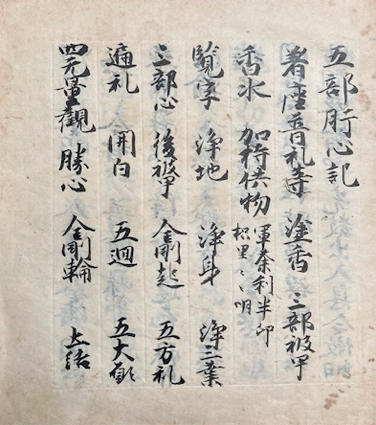 五部肝心記
着座普礼等 塗香 三部被甲
香水 加持供物 軍荼利半印
枳里〻〻明
覧字 浄地 浄身 浄三業
三部心 後被甲 金剛起 五方礼
遍礼 開白 五迴 五大願
四无量觀 勝心 金剛輪